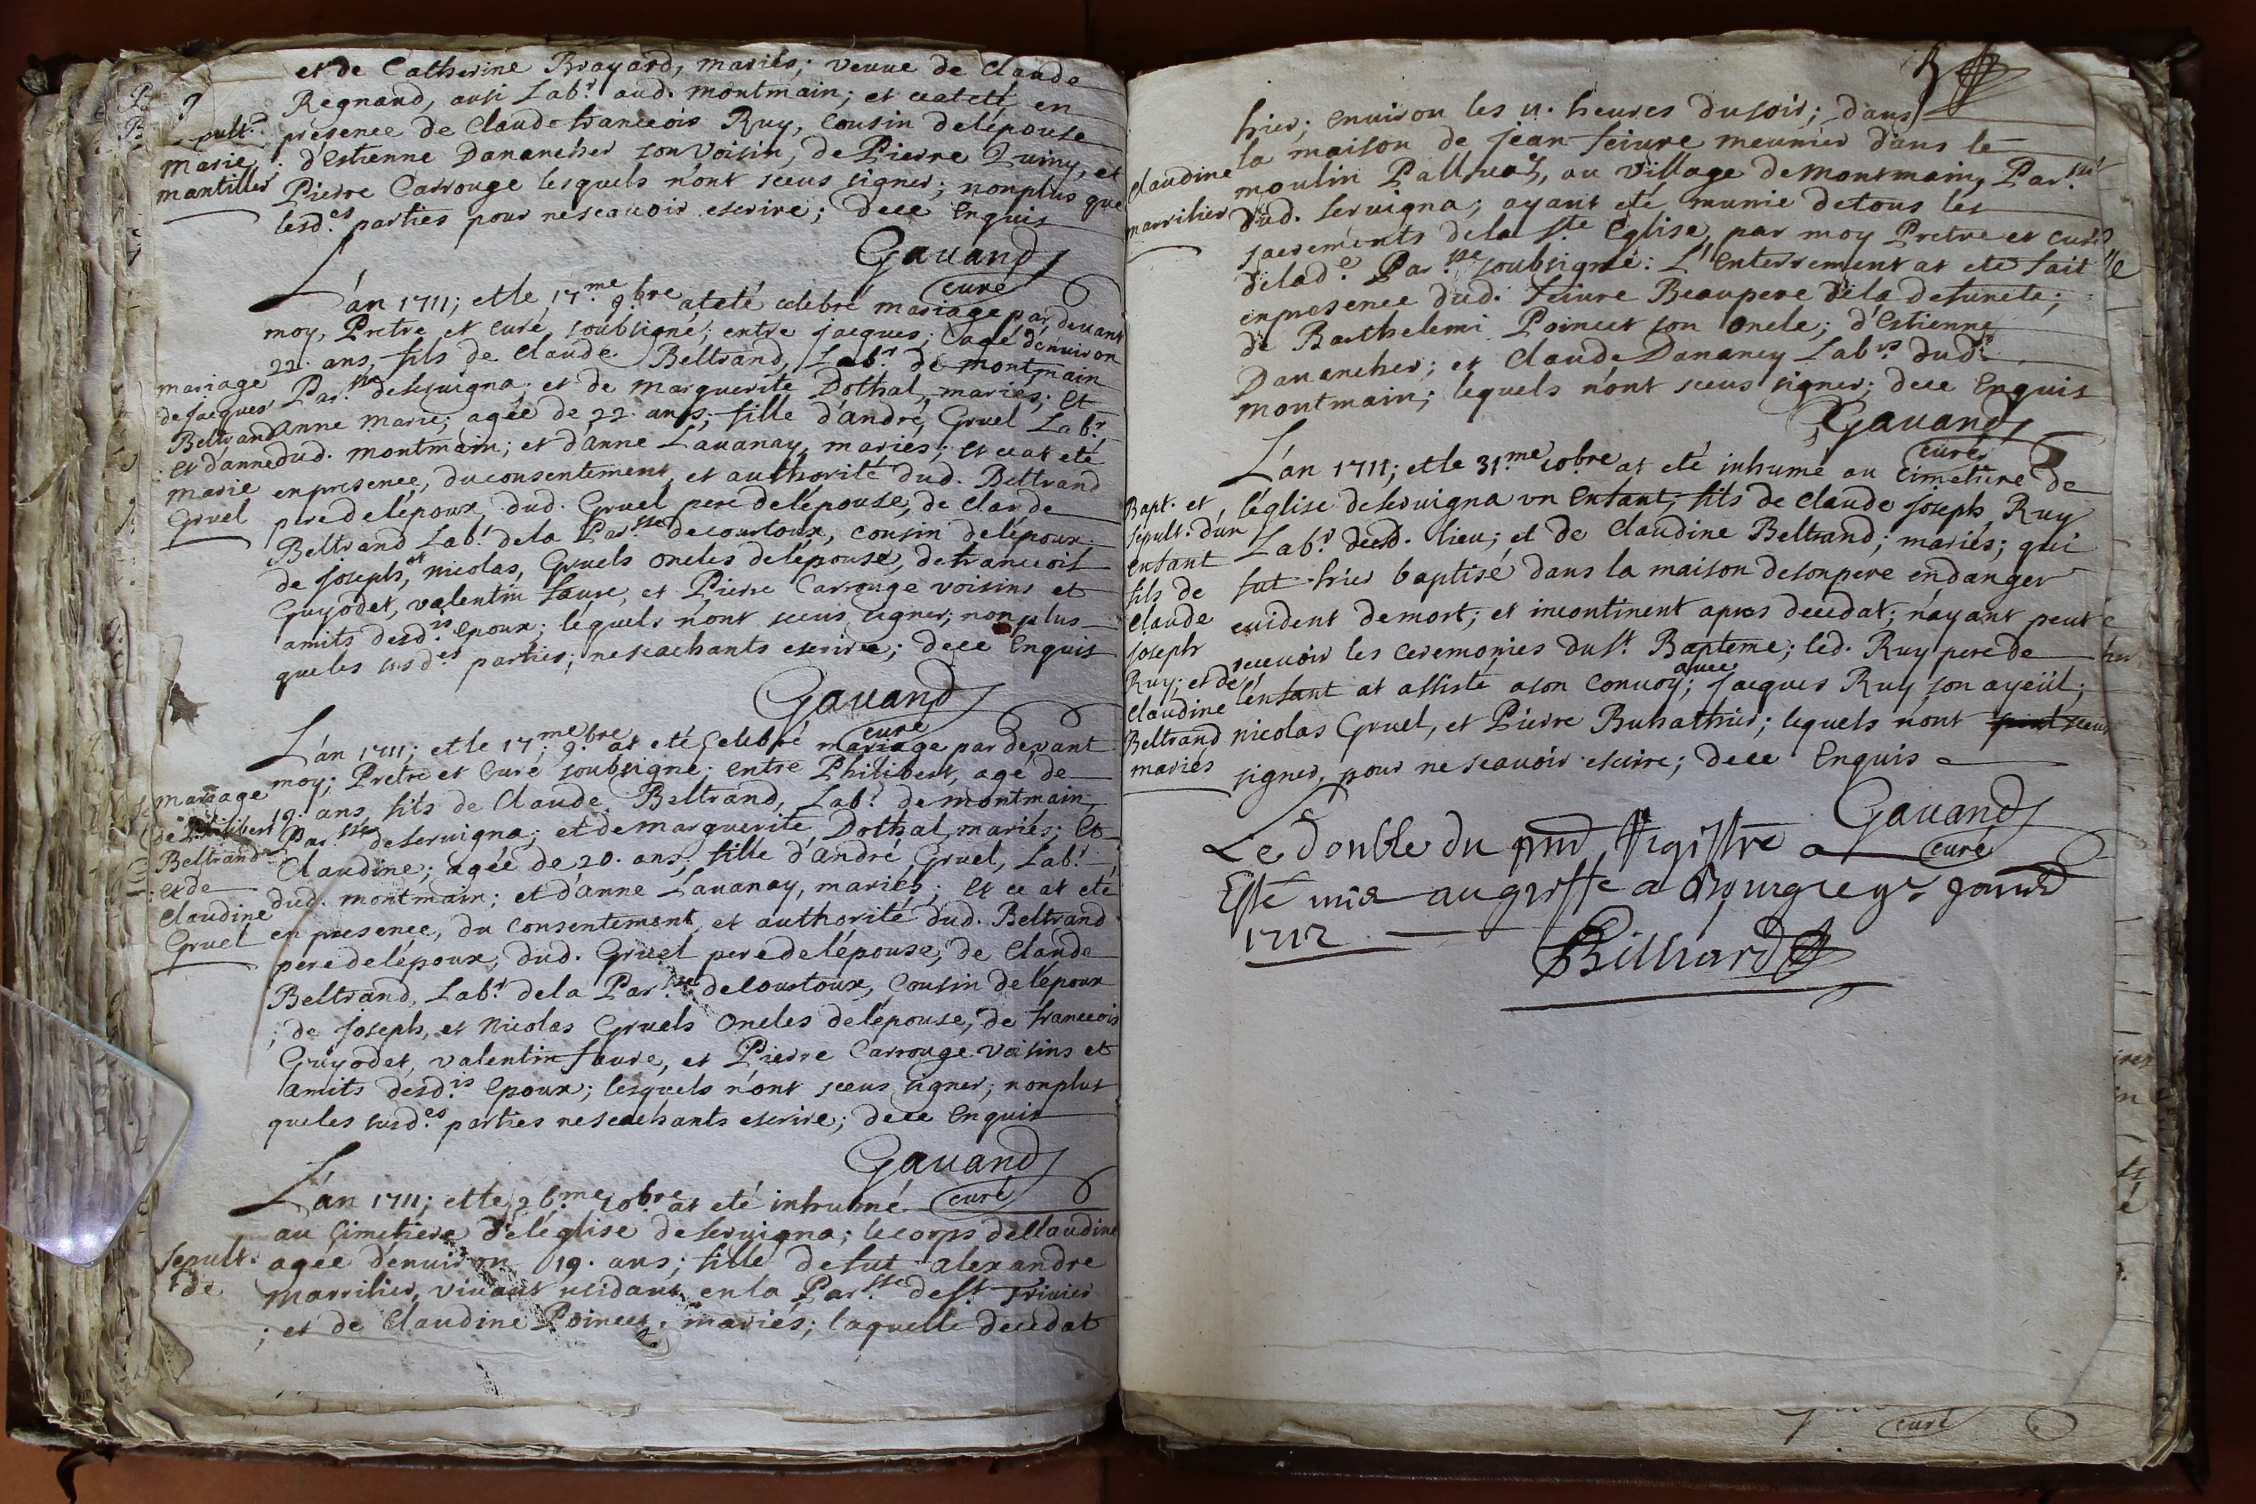 et de Catherine Brayard, mariés; veuve de Claude
Regnaud, ausi Lab.r aud. montmain; et ce at eté en
présence de Claude francois Ruy, Cousin delépouse
d'Estienne Danancher son voisin, de Pierre Quiny, et
Pierre Carrouge lesquels n'ont sceus signer; nonplus que
lesd.es parties pour nescavoir escrire; dece Enquis
sepult.re
marie
mantillier
Gauand
curé
L'an 1711; et le 17.me 9.bre at eté celebré mariage par devant
moy, Pretre et curé soubsigné; entre Jacques; agé d'enuiron
22. ans, fils de Claude Beltrand, Lab.r de montmain
Par.sse deseruigna; et de marguerite Dothal, mariés; et
anne Marie; agée de 22. ans; fille d'andré Gruel Lab.r
dud. montmain; et d'anne Lauanay, mariés; et ce at eté
enpresence, du consentement, et authorité dud. Beltrand
pere delépoux, dud. Gruel pere delépouse, de claude
Beltrand Lab.r dela Par.sse decourtoux, cousin delépoux
de Joseph, et nicolas, Gruels oncles delépouse, de francois
Guyodet, valentin faure, et Pierre Carrouge voisins et
amits desd.is epoux; léquels n'ont sceus signer; nonplus
queles susd.es parties; nescachants escrire; dece Enquis
mariage
de Jacques
Beltrand
et d'anne
marie
Gruel
Gauand
curé
L'an 1711; et le 17.me 9.bre at eté celebré mariage par devant
moy; Pretre et curé soubsigné; entre Philibert, agé de
19. ans, fils de Claude Beltrand, Lab.r de montmain
Par.sse deseruigna; et de marguerite Dothal, mariés; et
Claudine; agée de 20. ans; fille d'andré Gruel, Lab.r
dud. montmain; et d'anne Lauanay, mariés; et ce at eté
en presence, du consentement, et authorité dud. Beltrand
pere delépoux, dud. Gruel pere delépouse, de Claude
Beltrand, Lab.r dela Par.sse decourtoux, Cousin de lépoux
; de Joseph, et nicolas Gruels oncles delépouse, de francois
Guyodet, valentin faure, et Pierre Carrouge voisins et
amits desd.is Epoux; lesquels n'ont sceus signer; nonplus
queles susd.es parties nescachants escrire; dece Enquis
mariage
de Philibert
Beltrand
et de
Claudine
Gruel
Gauand
curé
L'an 1711; et le 26.me 10.bre at eté inhumé
au Cimetiere de léglise de seruigna; lecorps deClaudine
agée d'enuiron 19. ans; fille de fut alexandre
Marrilier, viuant residant en la Par.sse de S.t Triuier
; et de Claudine Poincet, mariés; laquelle decedat
sepult.
de
hier; enuiron les 11. heures dusoir; dans
la maison de Jean feiure meunier dans le
moulin Palluaz, au village de montmain, Par.sse
dud. seruigna; ayant eté munie detous les
sacrements dela S.te Eglise, par moy Pretre et curé
delad.e Par.sse soubsigné: L'enterrement at eté fait
enpresence dud. feiure Beaupere dela defuncte;
de Barthelemi Poincet son oncle; d'Estienne
Danancher; et Claude Dananey Lab.rs dud.
montmain; lequels n'ont sceus signer; dece Enquis
Claudine
marrilier
Gauand
curé
L'an 1711; et le 31.me 10.bre at eté inhumé au Cimetiere de
léglise deseruigna un Enfant, fils de Claude Joseph Ruy
Lab.r dud. lieu; et de Claudine Beltrand; mariés; qui
fut hier baptisé dans la maison desonpere endanger
euident demort; et incontinent apres decedat; n'ayant peut
receuoir les ceremonies du S.t Bapteme; led. Ruy pere de
l'enfant at assisté ason conuoy; auec Jacques Ruy son ayeül;
nicolas Gruel, et Pierre Buhathier; lequels n'ont point sceus
signer, pour ne scauoir escrire; dece Enquis
Bapt. et
sepult. d'un
enfant
fils de
Claude
Joseph
Ruy; et de
Claudine
Beltrand
mariés
Gauand
curé
Le double du pnt Registre a
Esté mis augreffe a Bourg le 9.e Januier
1712
Billiard
curé